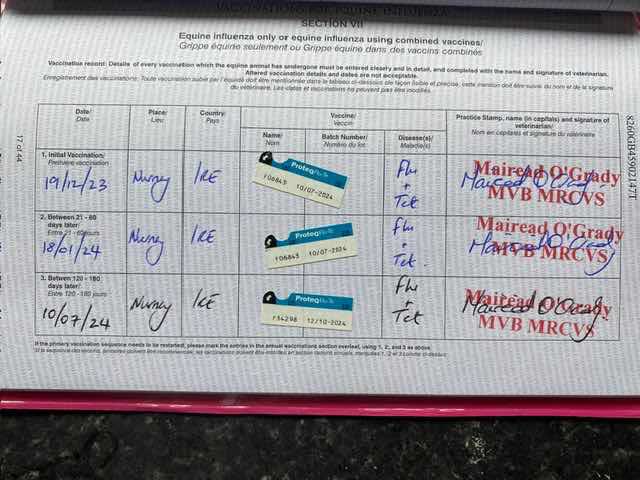 VACCINATIONS FOR EQUINE INFLUENZA
SECTION VII
Equine influenza only or equine influenza using combined vaccines/
Grippe équine seulement ou Grippe équine dans des vaccins combinés
Vaccination record: Details of every vaccination which the equine animal has undergone must be entered clearly and in detail, and completed with the name and signature of veterinarian.
Altered vaccination details and dates are not acceptable.
Enregistrement des vaccinations: Toute vaccination subie par l'équidé doit être mentionnée dans le tableau ci-dessous de façon lisible et précise, cette mention doit être suivie du nom et de la signature
du vétérinaire. Les dates et vaccinations ne peuvent pas être modifiés.
Date/
Date
Place/
Lieu
Country/
Pays
Vaccine/
Vaccin
Practice Stamp, name (in capitals) and signature of
veterinarian/
Nom en capitales et signature du vétérinaire
Name/
Nom
Batch Number/
Numéro du lot
Disease(s)/
Maladie(s)
1. Initial Vaccination/
Première vaccination
19/12/23
Nurney
IRE
ProteqFlu
F06843 10/07-2024
Flu
+
Tet
Mairead O'Grady
MVB MRCVS
Mairead O Grady
2. Between 21 - 60
days later/
Entre 21 - 60 jours
18/01/24
Nurney
IRE
ProteqFlu
F06843 10/07-2024
Flu
+
Tet.
Mairead O'Grady
MVB MRCVS
Mairead O Grady
3. Between 120 - 180
days later/
Entre 120 - 180 jours
10/07/24
Nurney
IRE
ProteqFlu
F34298 12/10-2024
Flu
+
Tet
Mairead O'Grady
MVB MRCVS
Mairead O Grady
If the primary vaccination sequence needs to be restarted, please mark the entries in the annual vaccinations section overleaf, using 1, 2, and 3 as above.
17 of 44